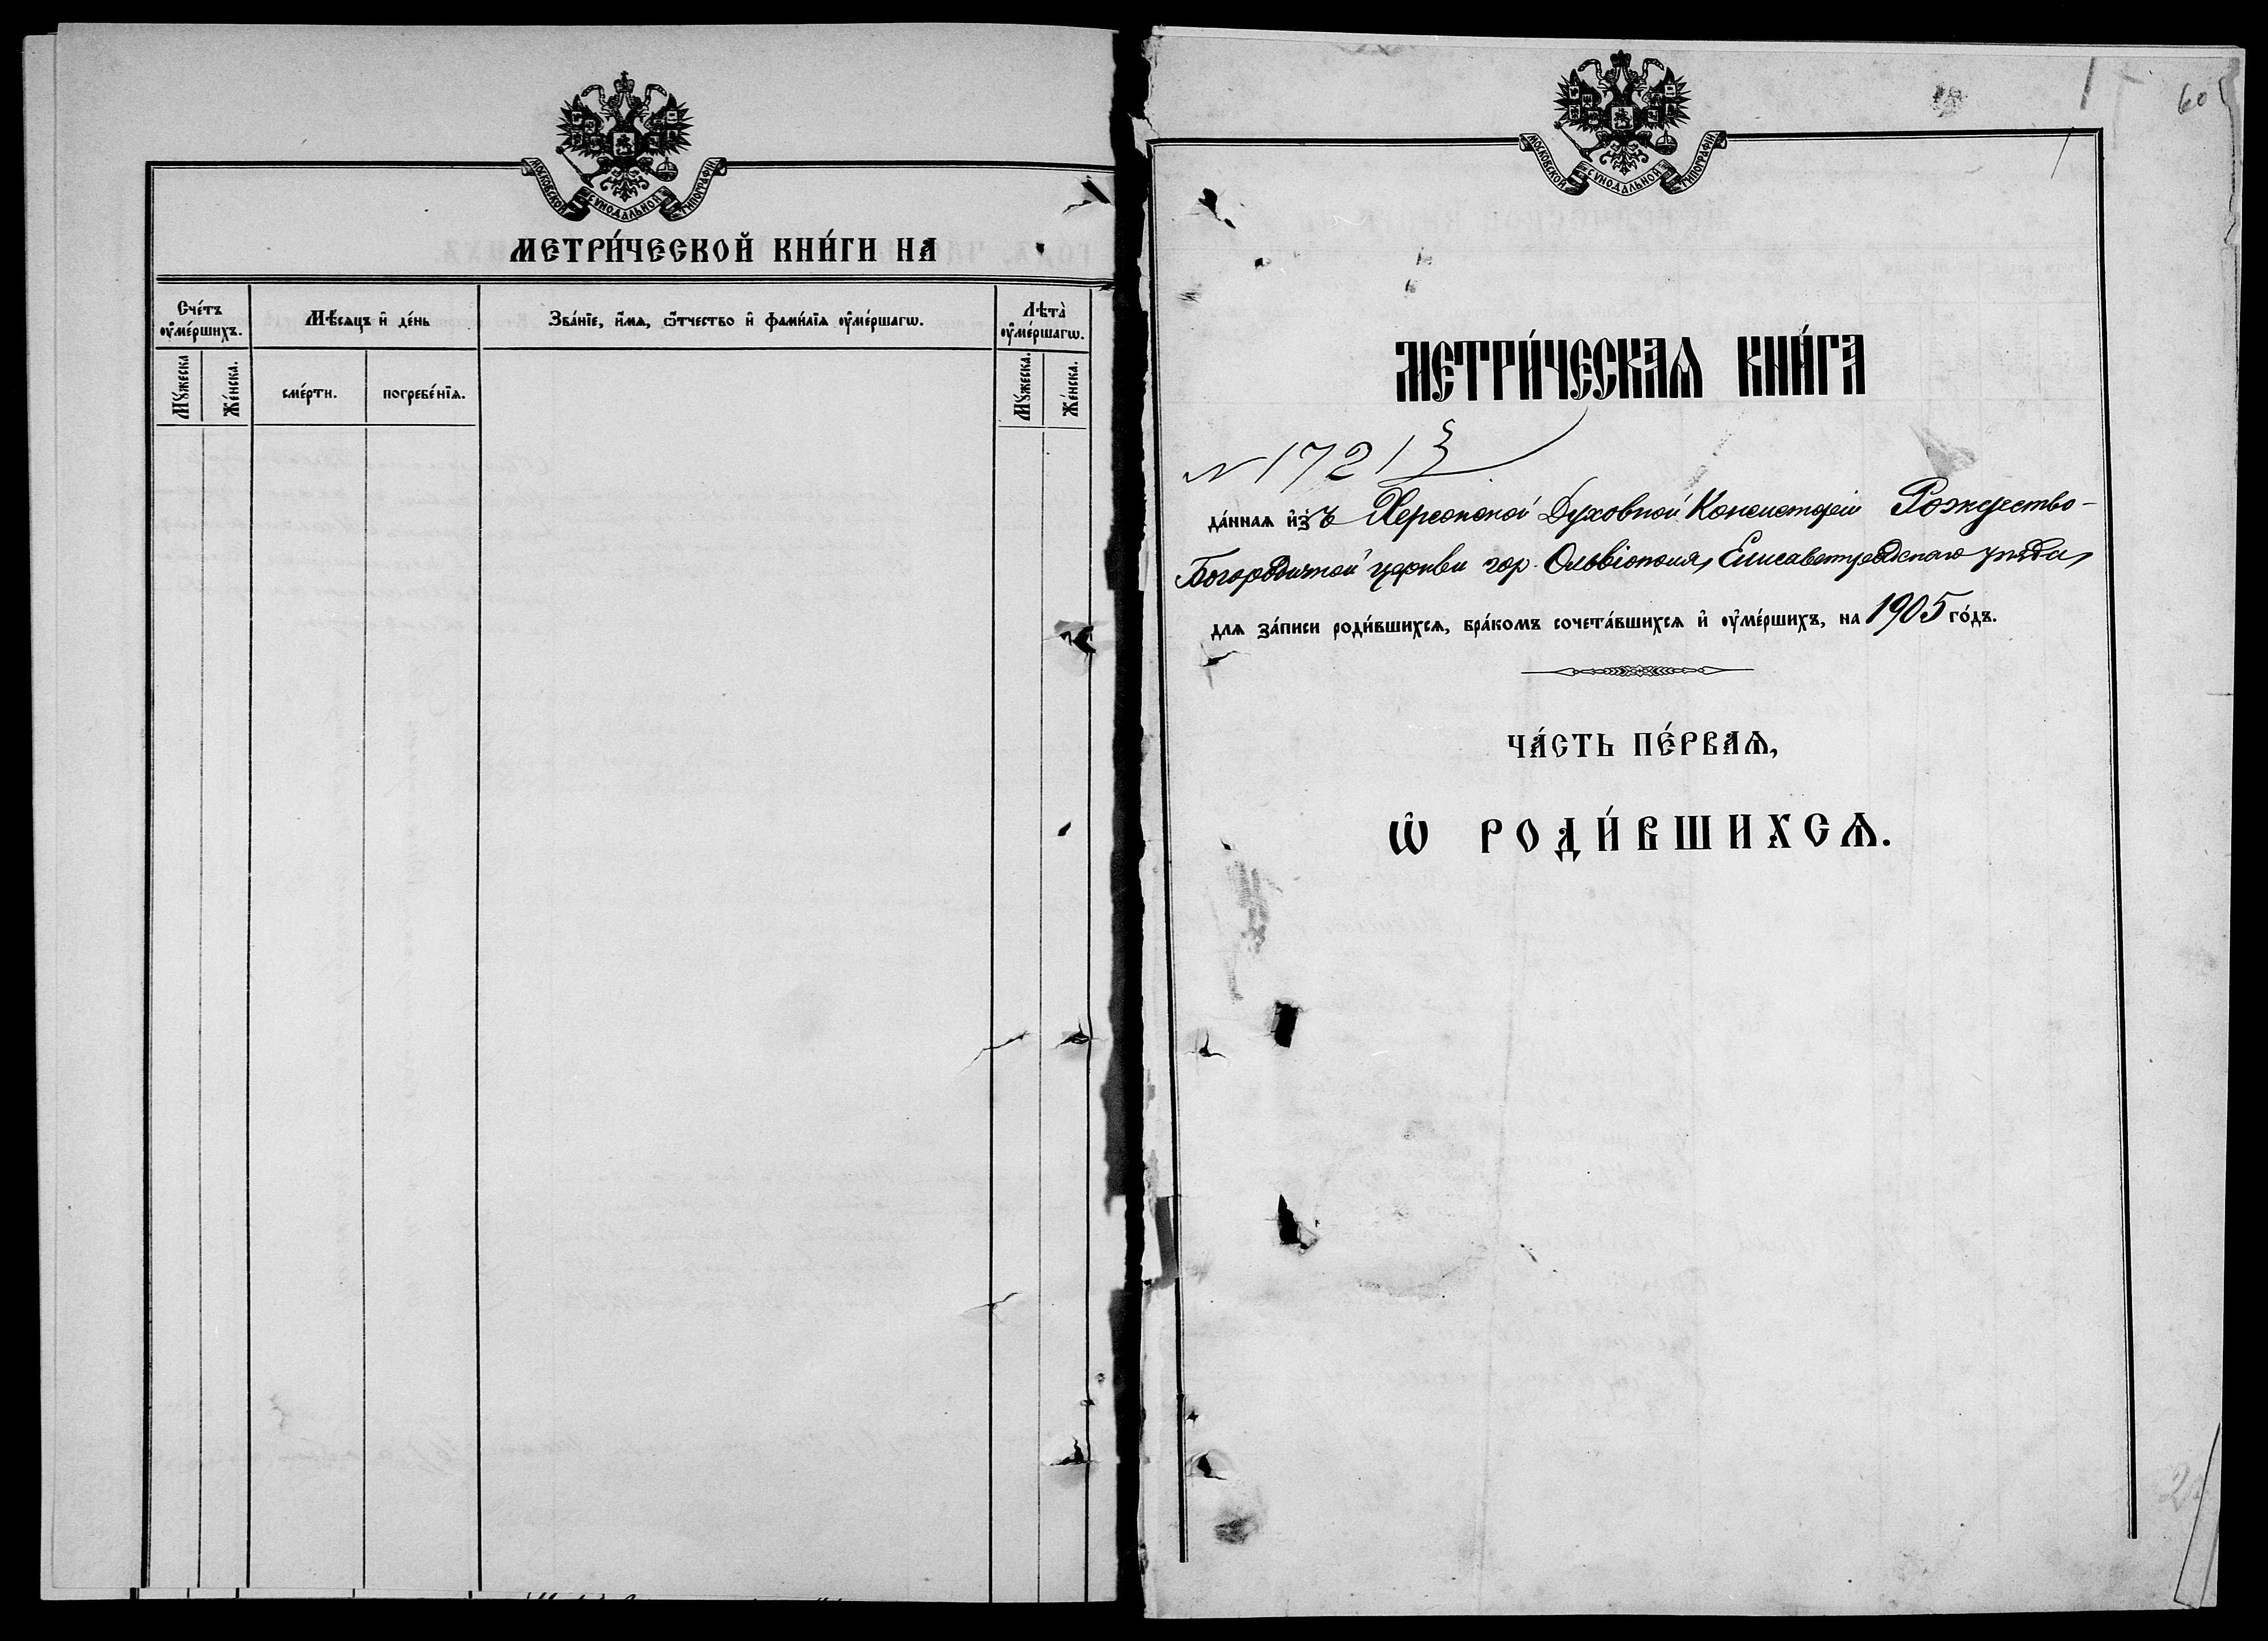 МОСКОВСКОЙ СѴНОДАЛЬНОЙ ТИПОГРАФІИ
МЕТРИ́ЧЕСКОЙ КНИ́ГИ НА
Сче́тъ ᲂу҆ме́ршихъ.
Мѣ́сяцъ и҆ де́нь
Зва́нїе, и҆́мѧ, ѻ҆́тчество и҆ фами́лїѧ ᲂу҆ме́ршагѡ.
Лѣта̀ ᲂу҆ме́ршагѡ.
Мꙋ́жеска
Же́нска.
сме́рти.
погребе́нїѧ.
Мꙋ́жеска.
Же́нска.
60
МОСКОВСКОЙ СѴНОДАЛЬНОЙ ТИПОГРАФІИ
МЕТРИ́ЧЕСКАѦ КНИ́ГА
N 1721
да́ннаѧ и҆з̾ъ Херсонской Духовной Консисторіи Рождество-
Богородичной церкви гор. Ольвіополя, Елисаветградскаго уѣзда,
длѧ за́писи роди́вшихсѧ, бра́комъ сочета́вшихсѧ и҆ ᲂу҆ме́ршихъ, на 1905 го́дъ.
ЧА́СТЬ ПЕ́РВАѦ,
Ѡ҆ РОДИ́ВШИХСѦ.